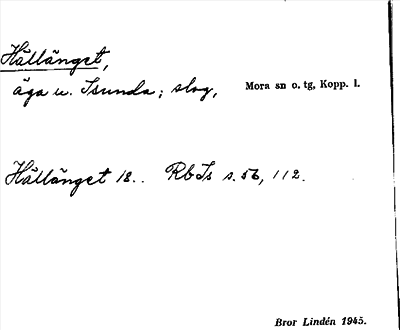 Hållänget,
äga u. Isunda; slog, Mora sn o. tg, Kopp. l.
Hållänget 18.. RbIs s. 56, 112.
Bror Lindén 1945.